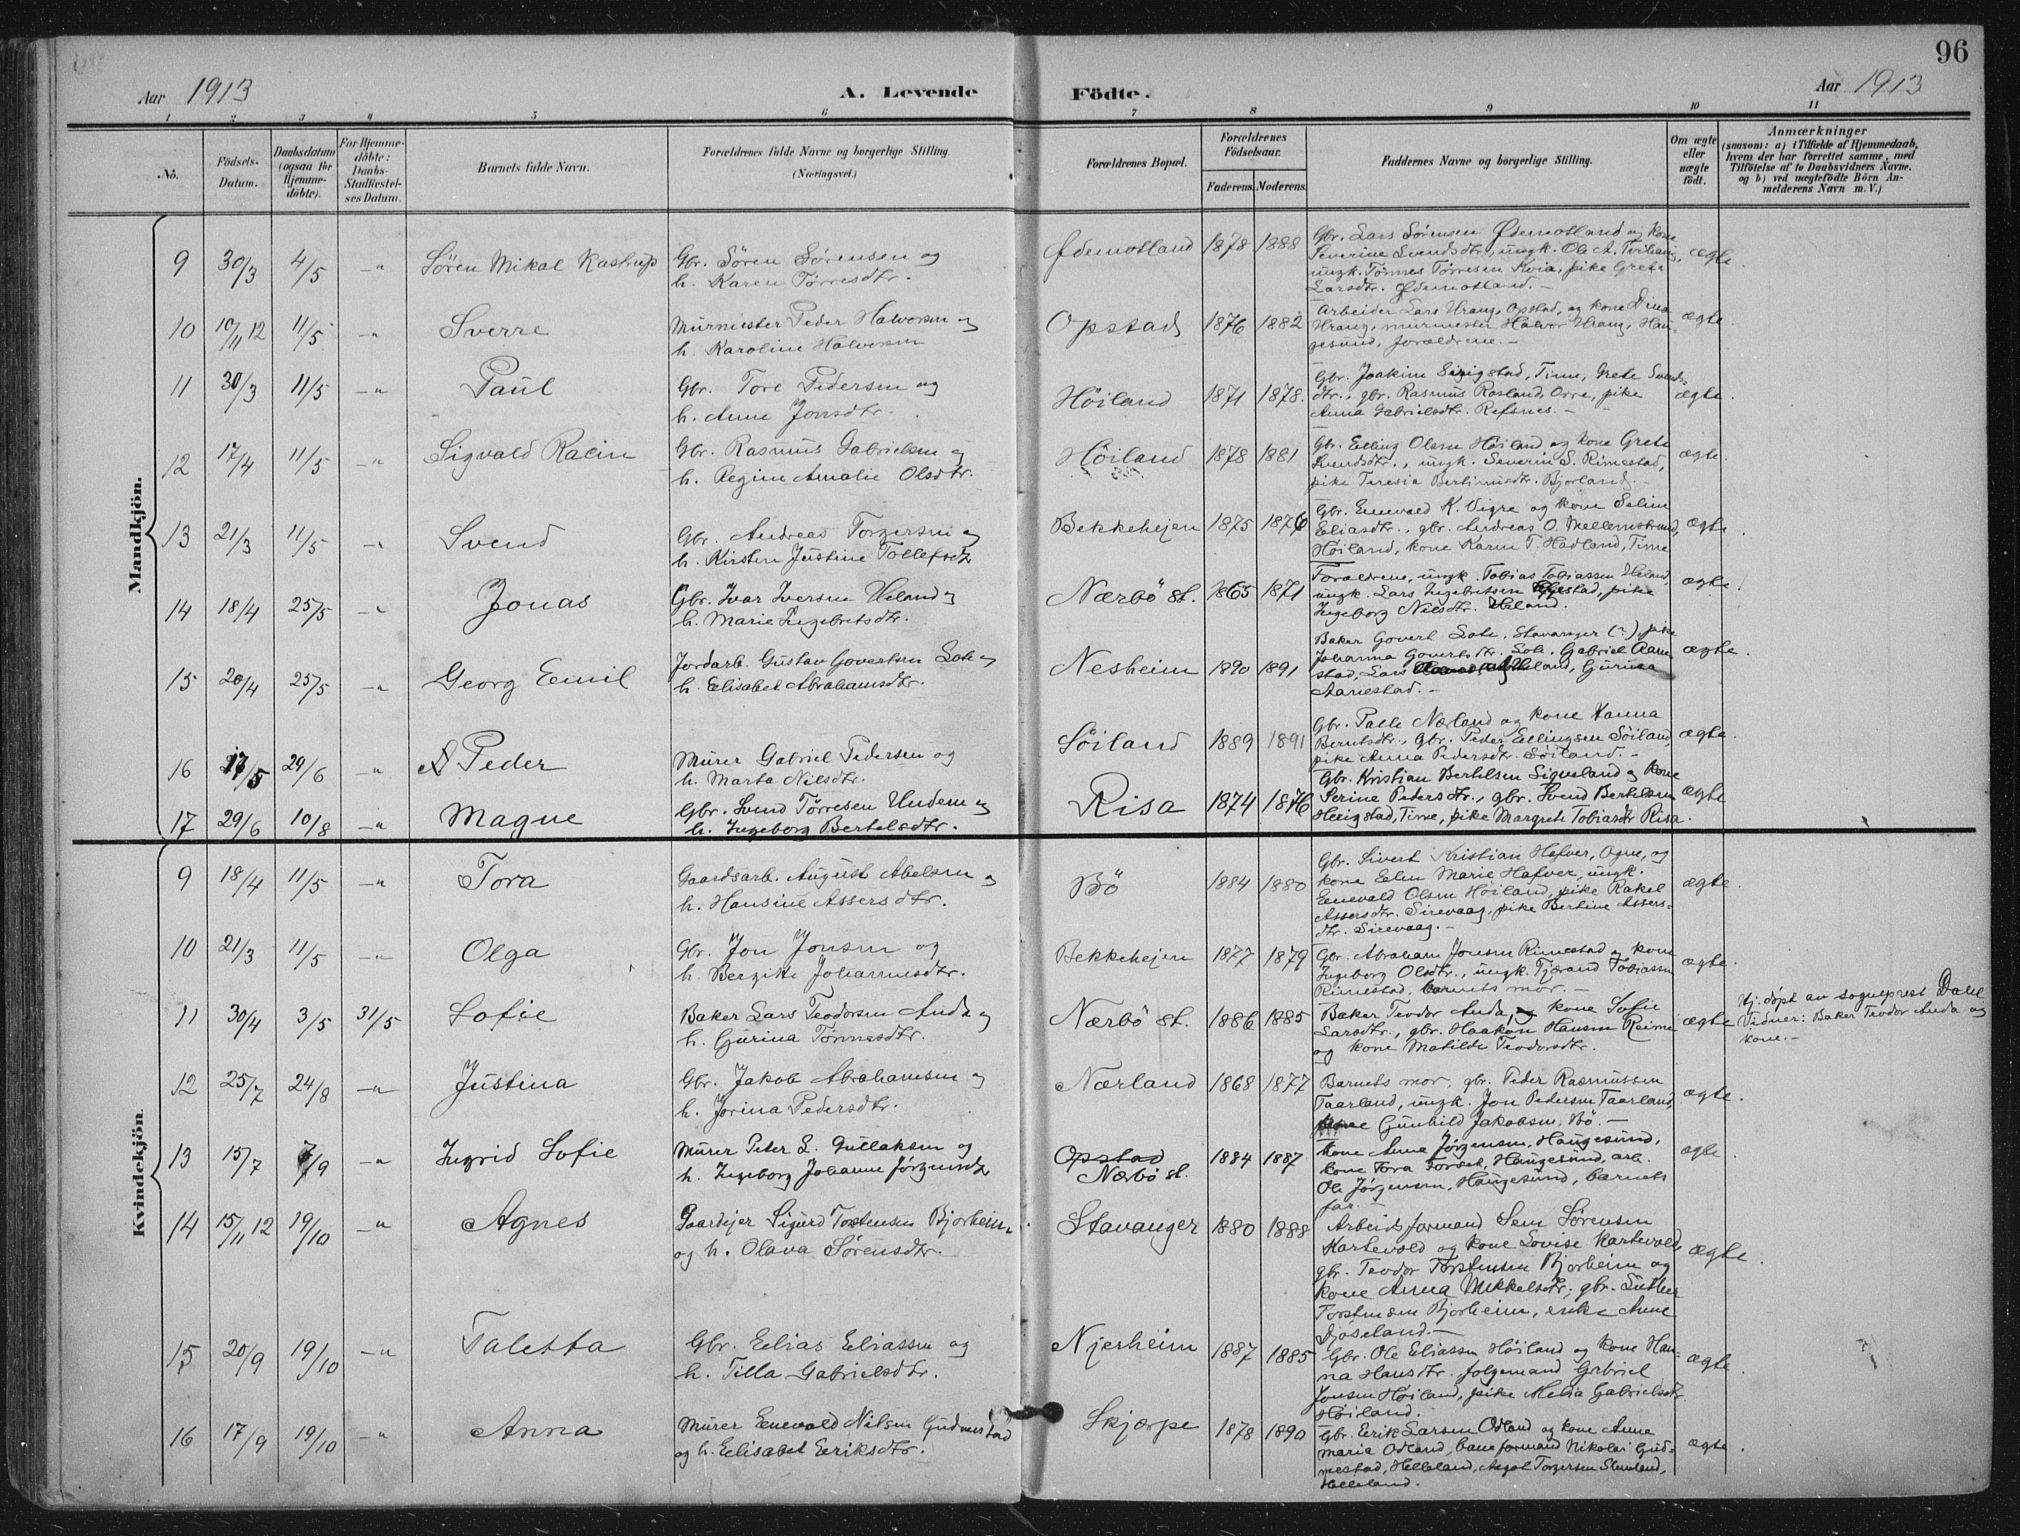 96
Aar 1913
A. Levende
Födte.
Aar 1913
1 2 3 4 5 6 7 8 9 10 11
No.
Födsels-
Datum.
Daabsdatum
(ogsaa for
Hjemme-
döbte).
For Hjemme-
döbte:
Daabs-
Stadfæstel-
ses Datum.
Barnets fulde Navn.
Forældrenes fulde Navne og borgerlige Stilling.
(Næringsvei.)
Forældrenes Bopæl.
Forældrenes
Födselsaar.
Faderens. Moderens.
Faddernes Navne og borgerlige Stilling.
Om ægte
eller
uægte
födt.
Anmærkninger
(saasom: a) i Tilfælde af Hjemmedaab,
hvem der har forrettet samme, med
Tilföielse af to Daabsvidners Navne.
og b) ved uægtefödte Börn An-
melderens Navn m. V.)
Mandkjön.
9 30/3 4/5 -"- Søren Mikal Kastrup
Gbr. Søren Sørensen og
h. Karen Tørresdtr.
Ødemotland 1878 1888
Gbr. Lars Sørensen Ødemotland og kone
Severine Svendsdtr., ungk. Ole A.
ungk. Tønnes Tørresen Kvia, pike Grete
Larsdtr. Ødemotland.-
ægte.
10 10/11 12 11/5 -"- Sverre
Murmester Peder Halvorsen og
h. Karoline Halvorsen
Opstad 1876 1882
Arbeider Lars Vrang, Opstad, og kone Dina
Vrang, murmester Halvor Vrang, Hau-
gesund, forældrene.-
ægte.
11 30/3 11/5 -"- Paul
Gbr. Tore Pedersen og
h. Anne Jonsdtr.
Høiland 1871 1878.
Gbr. Joakim Sigistad, Time, Grete Svends-
dtr., gbr. Rasmus Rosland, Orre, pike
Anna Gabrielsdtr. Refsnes.-
ægte.
12 17/4 11/5 -"- Sigvald Racin
Gbr. Rasmus Gabrielsen og
h. Regine Amalie Olsdtr.
Høiland 1878 1881
Gbr. Elling Olsen Høiland og kone Grete
Svendsdtr., ungk. Severin S. Rimestad,
pike Teresia Bertinusdtr. Bjorland.-
ægte.
13 21/3 11/5 -"- Svend
Gbr. Andreas Torgersen og
h. Kirsten Justine Tollefsdtr
Bekkehejen 1875 1876
Gbr. Enevald K. Vigre og kone Seline
Eliasdtr., gbr. Andreas O. Mellemstrand,
Høiland, kone Karen T. Hadland, Time
ægte.
14 18/4 25/5 -"- Jonas
Gbr. Ivar Iversen Heland og
h. Marie Ingebretsdtr.
Nærbö st. 1865 1871
Forældrene, ungk. Tobias Tobiassen Heland,
ungk. Lars Ingebretsen pike
Ingeborg Nilsdtr. Heland.
ægte.
15 20/4 25/5 -"- Georg Emil
Jordarb. Gustav Govertsen Lote og
h. Elisabet Abrahamsdtr.
Nesheim 1890 1891
Baker Govert Lote, Stavanger (?), pike
Johanna Govertsdtr. Lote, Gabriel Aane-
stad, Lars Heland, Gurina
Aanestad.-
ægte.
16 17/5 29/6 -"- Peder
Murer Gabriel Pedersen og
h. Marta Nilsdtr.
Söiland 1889 1891
Gbr. Palle Nærland og kone Hanna
Berntsdtr., gbr. Peder Ellingsen Söiland,
pike Anna Pedersdtr. Söiland.-
ægte.
17 29/6 10/8 -"- Magne
Gbr. Svend Tørresen Undem og
h. Ingeborg Bertelsdtr.
Risa 1874 1876
Gbr. Kristian Bertelsen Sigveland og kone
Serine Pedersdtr., gbr. Svend Bertelsen
Heigstad, Time, pike Margrete Tobiasdtr Risa.
ægte
Kvindekjön.
9 18/4 11/5 -"- Tora
Gaardsarb. August Abelsen og
h. Hansine Assersdtr.
Bö 1884 1880
Gbr. Sivert Kristian Hafver, Ogne, og
kone Elen Marie Hafver, ungk.
Enevald Olsen Höiland, pike Rakel
Assersdtr. Sirevaag, pike Bertine Assers-
dtr. Sirevaag.-
ægte.
10 21/3 11/5 -"- Olga
Gbr. Jon Jonsen og
h. Bergite Johannesdtr.
Bekkehejen 1877 1879
Gbr. Abraham Jonsen Rimestad og kone
Ingeborg Olsdtr., ungk. Tjærand Tobiassen
Rimestad, barnets mor.-
ægte.
11 30/4 3/5 31/5 Sofie
Baker Lars Teodorsen Auda og
h. Gurina Tönnesdtr.
Nærbö st. 1886 1885
Bæker Teodor Auda, kone Sofie
Larsdtr., gbr. Haakon Hansen Reime
og kone Matilde Teodorsdtr.
ægte
Hj: döpt av sogneprest Dahl
Vidner: Baker Teodor Auda og
kone.-
12 25/7 24/8 -"- Justina
Gbr. Jakob Abrahamsen og
h. Jorina Pedersdtr.
Nærland 1868 1877
Barnets mor, gbr. Peder Rasmussen
Taarland, ungk. Jon Pedersen Taarland,
Gunhild Jakobsen, Bö.-
ægte.
13 15/7 7/9 -"- Ingrid Sofie
Murer Peter L. Gullaksen og
h. Ingeborg Johanne Jörgensdtr
Opstad
Nærbö st. 1884 1887
Kone Anne Jörgensen, Haugesund,
kone Tora Haugesund, arb.
Ole Jörgensen, Haugesund, barnets
far.-
ægte.
14 15/11 12 19/10 -"- Agnes
Gaardejer Sigurd Torstensen Bjorheim
og h. Olava Sörensdtr.
Stavanger 1880 1888
Arbeidsformand Sem Sörensen
Hartevold og kone Lovise Hartevold,
gbr. Teodor Torstensen Bjorheim og
kone Anna Mikkelsdtr., gbr. Luther
Torstensen Bjorheim, enke Anne
Djöseland.-
ægte.
15 20/9 19/10 -"- Taletta
Gbr. Elias Eliassen og
h. Tilla Gabrielsdtr.
Njerheim 1887 1885
Gbr. Ole Eliassen Höiland og kone Han-
na Hansdtr., folgemand Gabriel
Jonsen Höiland, pike Melia Gabrielsdtr
Höiland.
ægte.
16 17/9 19/10 -"- Anna
Murer Enevald Nilsen Gudmestad
og h. Elisabet Eeriksdtr.
Skjærpe 1878 1890
Gbr. Eerik Larsen Odland og kone Anne
Maria Odland, baneformand Nikolai Gud-
mestad, Helleland, Torgersen
Helleland.
ægte.